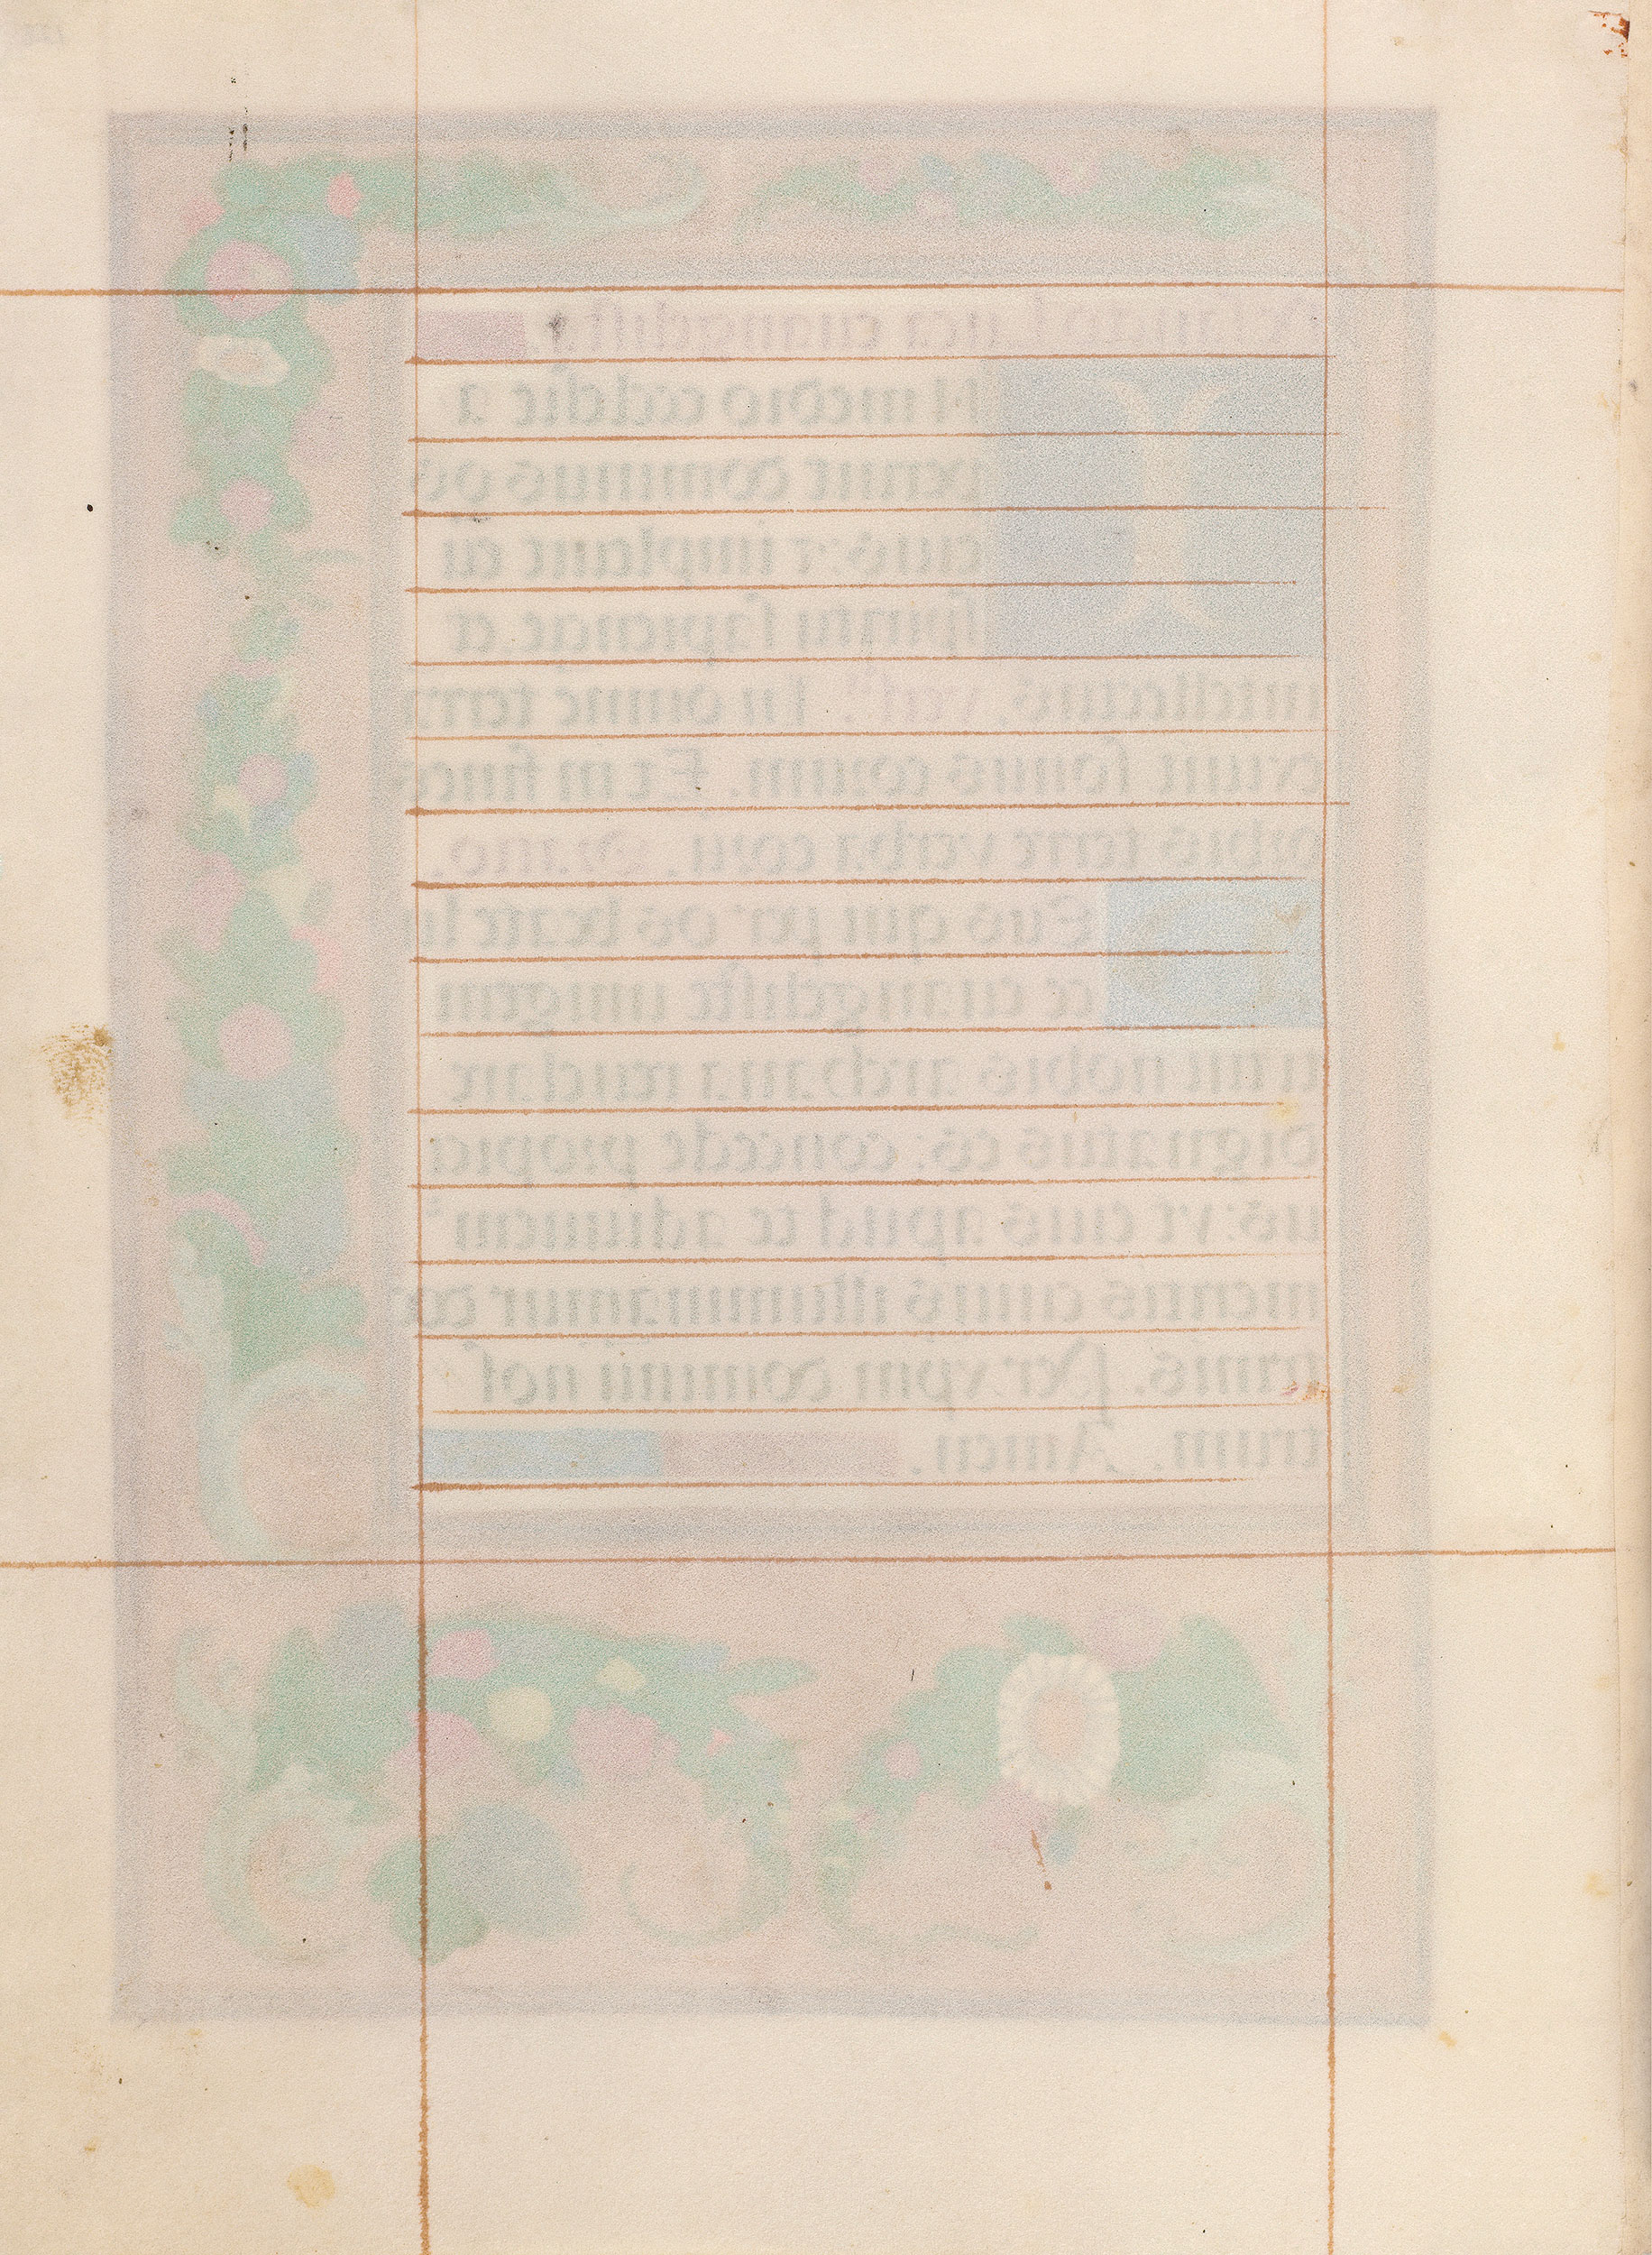 sancto Luca euangelista
IN medio ecclesie a
peruit dominus os
eius: et impleuit eū
spiritu sapiencie et
intellectus. vers. In omne terrā
exiuit sonus eorum. Et in fines
orbis terre verba eorū. Oratio.
Deus qui per os beate lu
ce euangeliste unigeni
ti tui nobis archana reuelare
dignatus es: concede propici
us: vt eius apud te adiuuem
mentis cuius illuminamur doc
trinis. Per xpm dominū nos
trum. Amen.